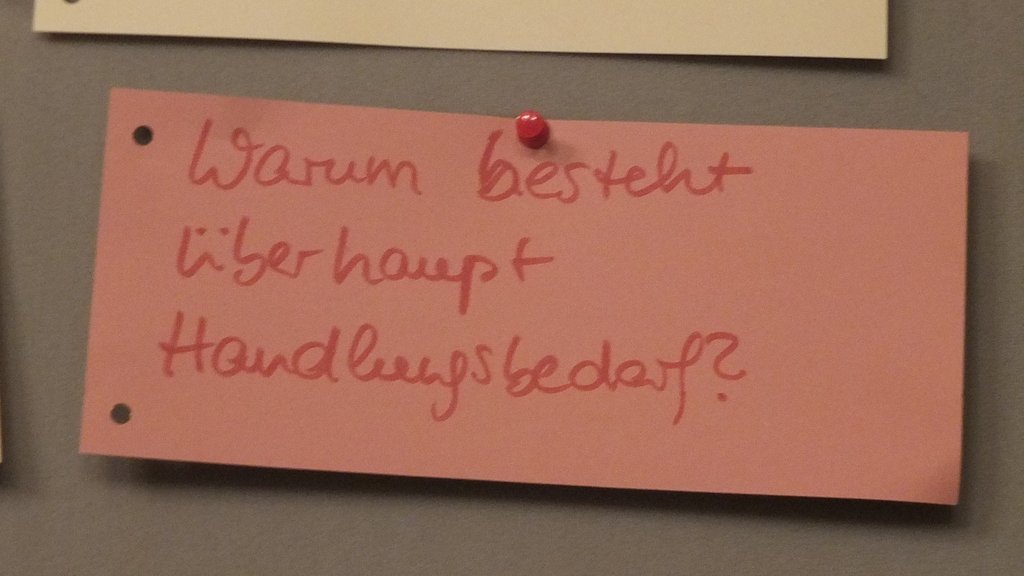 Warum besteht
überhaupt
Handlungsbedarf?